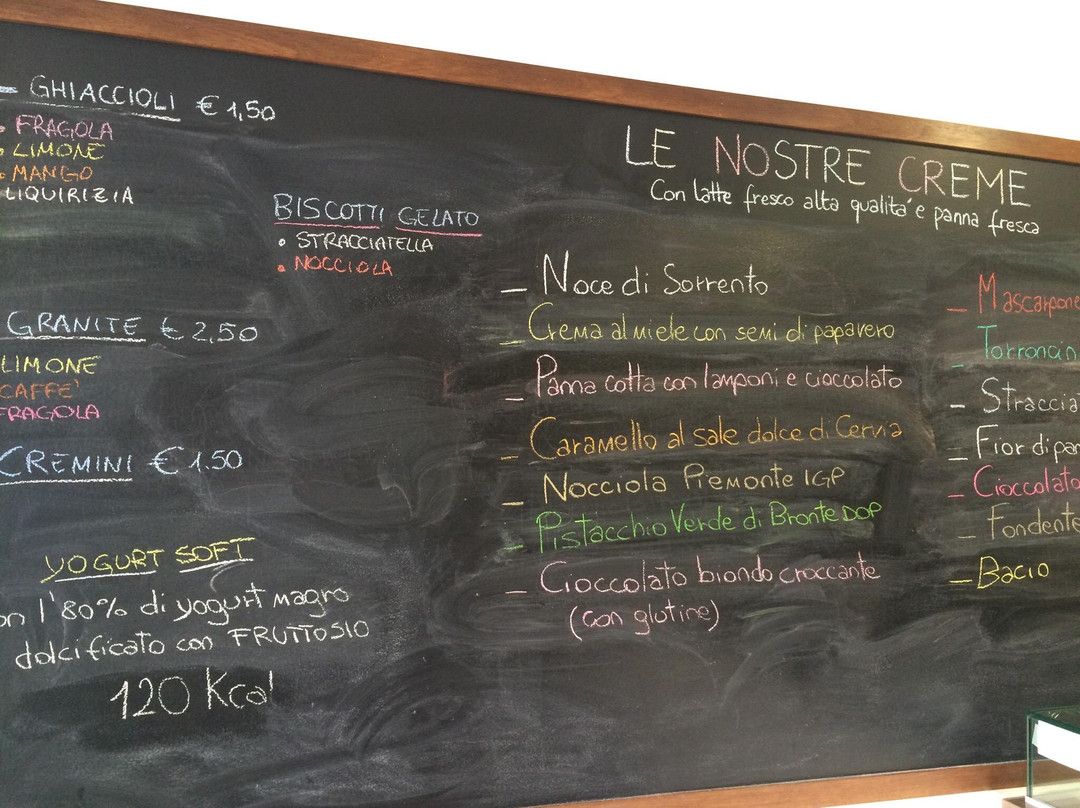 - GHIACCIOLI € 1,50
• FRAGOLA
• LIMONE
• MANGO
LIQUIRIZIA
BISCOTTI GELATO
• STRACCIATELLA
• NOCCIOLA
GRANITE € 2,50
LIMONE
CAFFE'
FRAGOLA
CREMINI € 1.50
YOGURT SOFT
on l'80% di yogurt magro
dolcificato con FRUTTOSIO
120 Kcal
LE NOSTRE CREME
Con latte fresco alta qualita' e panna fresca
- Noce di Sorrento
- Crema al miele con semi di papavero
- Panna cotta con lamponi e cioccolato
- Caramello al sale dolce di Cervia
- Nocciola Piemonte IGP
- Pistacchio Verde di Bronte DOP
- Cioccolato biondo croccante
(con glutine)
- Mascarpone
- Torroncin
- Straccia
- Fior di pan
- Cioccolato
- Fondente
- Bacio